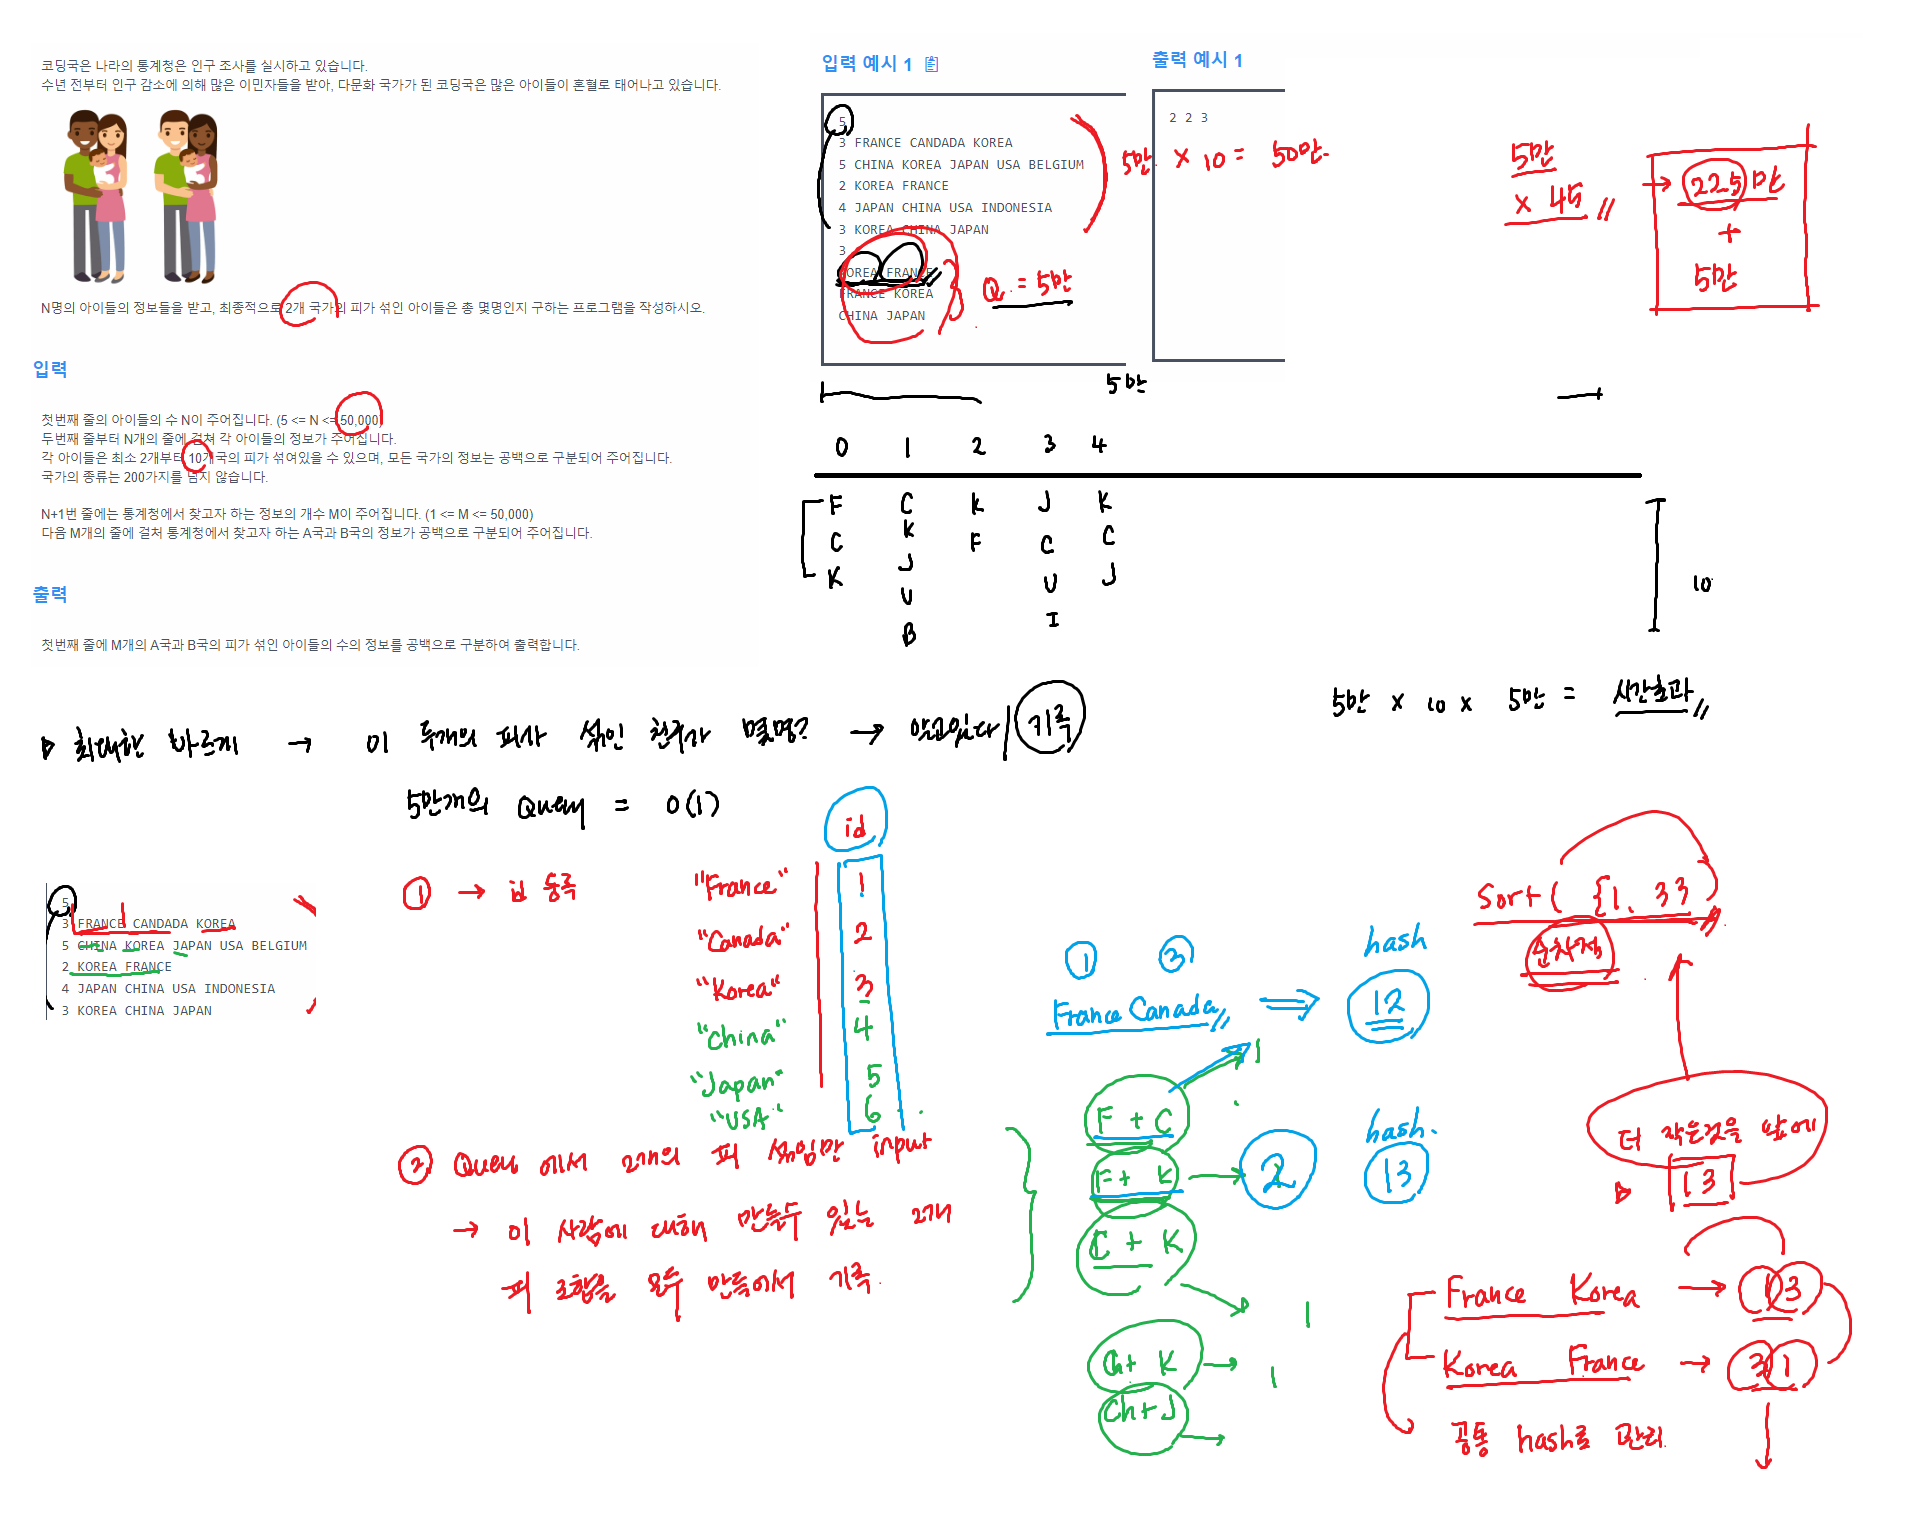 코딩국은 나라의 통계청은 인구 조사를 실시하고 있습니다.
수년 전부터 인구 감소에 의해 많은 이민자들을 받아, 다문화 국가가 된 코딩국은 많은 아이들이 혼혈로 태어나고 있습니다.
N명의 아이들의 정보들을 받고, 최종적으로 2개 국가의 피가 섞인 아이들은 총 몇명인지 구하는 프로그램을 작성하시오.
입력
첫번째 줄의 아이들의 수 N이 주어집니다. (5 <= N <= 50,000)
두번째 줄부터 N개의 줄에 걸쳐 각 아이들의 정보가 주어집니다.
각 아이들은 최소 2개부터 10개국의 피가 섞여있을 수 있으며, 모든 국가의 정보는 공백으로 구분되어 주어집니다.
국가의 종류는 200가지를 넘지 않습니다.
N+1번 줄에는 통계청에서 찾고자 하는 정보의 개수 M이 주어집니다. (1 <= M <= 50,000)
다음 M개의 줄에 걸처 통계청에서 찾고자 하는 A국과 B국의 정보가 공백으로 구분되어 주어집니다.
출력
첫번째 줄에 M개의 A국과 B국의 피가 섞인 아이들의 수의 정보를 공백으로 구분하여 출력합니다.
입력 예시 1
5
3 FRANCE CANDADA KOREA
5 CHINA KOREA JAPAN USA BELGIUM
2 KOREA FRANCE
4 JAPAN CHINA USA INDONESIA
3 KOREA CHINA JAPAN
3
KOREA FRANCE
FRANCE KOREA
CHINA JAPAN
출력 예시 1
2 2 3
5만 × 10 = 50만
Q = 5만
5만
× 45
→ 225만
+
5만
5만
0 1 2 3 4
F C K J K
C K F C C
K J U J
U I
B
10
5만 × 10 × 5만 = 시간초과
▷ 최대한 빠르게 → 이 두개의 피가 섞인 친구가 몇명? → 알고있다 / 기록
5만개의 Query = O(1)
id
① → id 등록
"France" 1
"Canada" 2
"Korea" 3
"China" 4
"Japan" 5
"USA" 6 . .
5
3 FRANCE CANDADA KOREA
5 CHINA KOREA JAPAN USA BELGIUM
2 KOREA FRANCE
4 JAPAN CHINA USA INDONESIA
3 KOREA CHINA JAPAN
② Query 에서 2개의 피 섞임만 input
→ 이 사람에 대해 만들수 있는 2개
피 조합을 모두 만들어서 기록.
① ③ hash
France Canada ⇒ 12
F + C 1
F + K → 2
hash.
13
C + K → 1
Ch + K → 1
Ch + J →
Sort ( {1, 3} )
순차적
더 작은것을 앞에
▷ 13
France Korea → 13
Korea France → 31
공통 hash로 관리